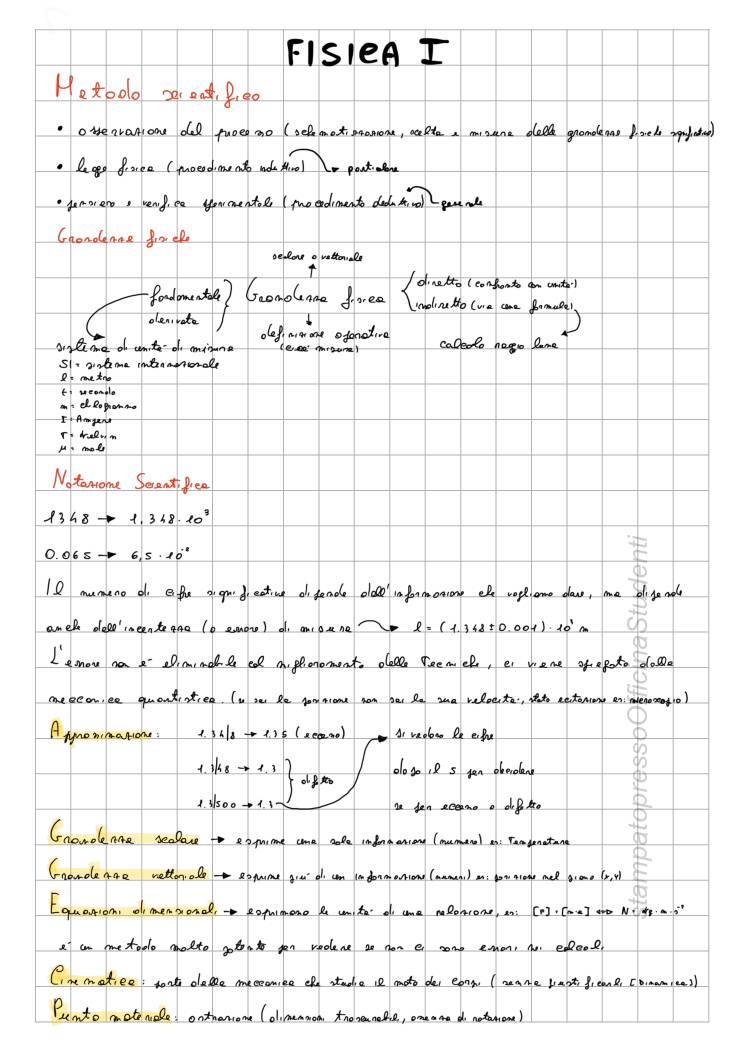 FISICA I
Metodo scientifico
• osservazione del processo (schematizzazione, scelta e misura delle grandezze fisiche significative)
• legge fisica (procedimento induttivo) → particolare
• pensiero e verifica sperimentale (procedimento deduttivo) → generale
Grandezze fisiche
scalare o vettoriale
fondamentale
derivata
Grandezza fisica
diretto (confronto con unità)
indiretto (via una formula)
definizione operativa
(cioè misura)
calcolo raggio luna
sistema di unità di misura
SI = sistema internazionale
l = metro
t = secondo
m = chilogrammo
I = Ampere
T = kelvin
μ = mole
Notazione Scientifica
1348 → 1,348·10³
0.065 → 6,5·10⁻²
Il numero di cifre significative dipende dall'informazione che vogliamo dare, ma dipende
anche dall'incertezza (o errore) di misura → l = (1.348±0.001)·10³ m
L'errore non è eliminabile col miglioramento delle Tecniche, ci viene spiegato dalla
meccanica quantistica. (se sai la posizione non sai la sua velocità, stato eccitazione es: microscopio)
Approssimazione: 1.34|8 → 1.35 (eccesso)
1.3|48 → 1.3
difetto
1.3|500 → 1.3
si vedono le cifre
dopo il 5 per decidere
se per eccesso o difetto
Grandezza scalare → esprime una sola informazione (numero) es: Temperatura
Grandezza vettoriale → esprime più di un informazione (numeri) es: posizione nel piano (x,y)
Equazioni dimensionali → esprimono le unità di una relazione, es: [F]=[m·a] ⟺ N = kg·m·s⁻²
è un metodo molto potente per vedere se non ci sono errori nei calcoli
Cinematica: parte della meccanica che studia il moto dei corpi (senza giustificarli [Dinamica])
Punto materiale: astrazione (dimensioni trascurabili, assenza di rotazione)
stampatopressoOfficinaStudenti